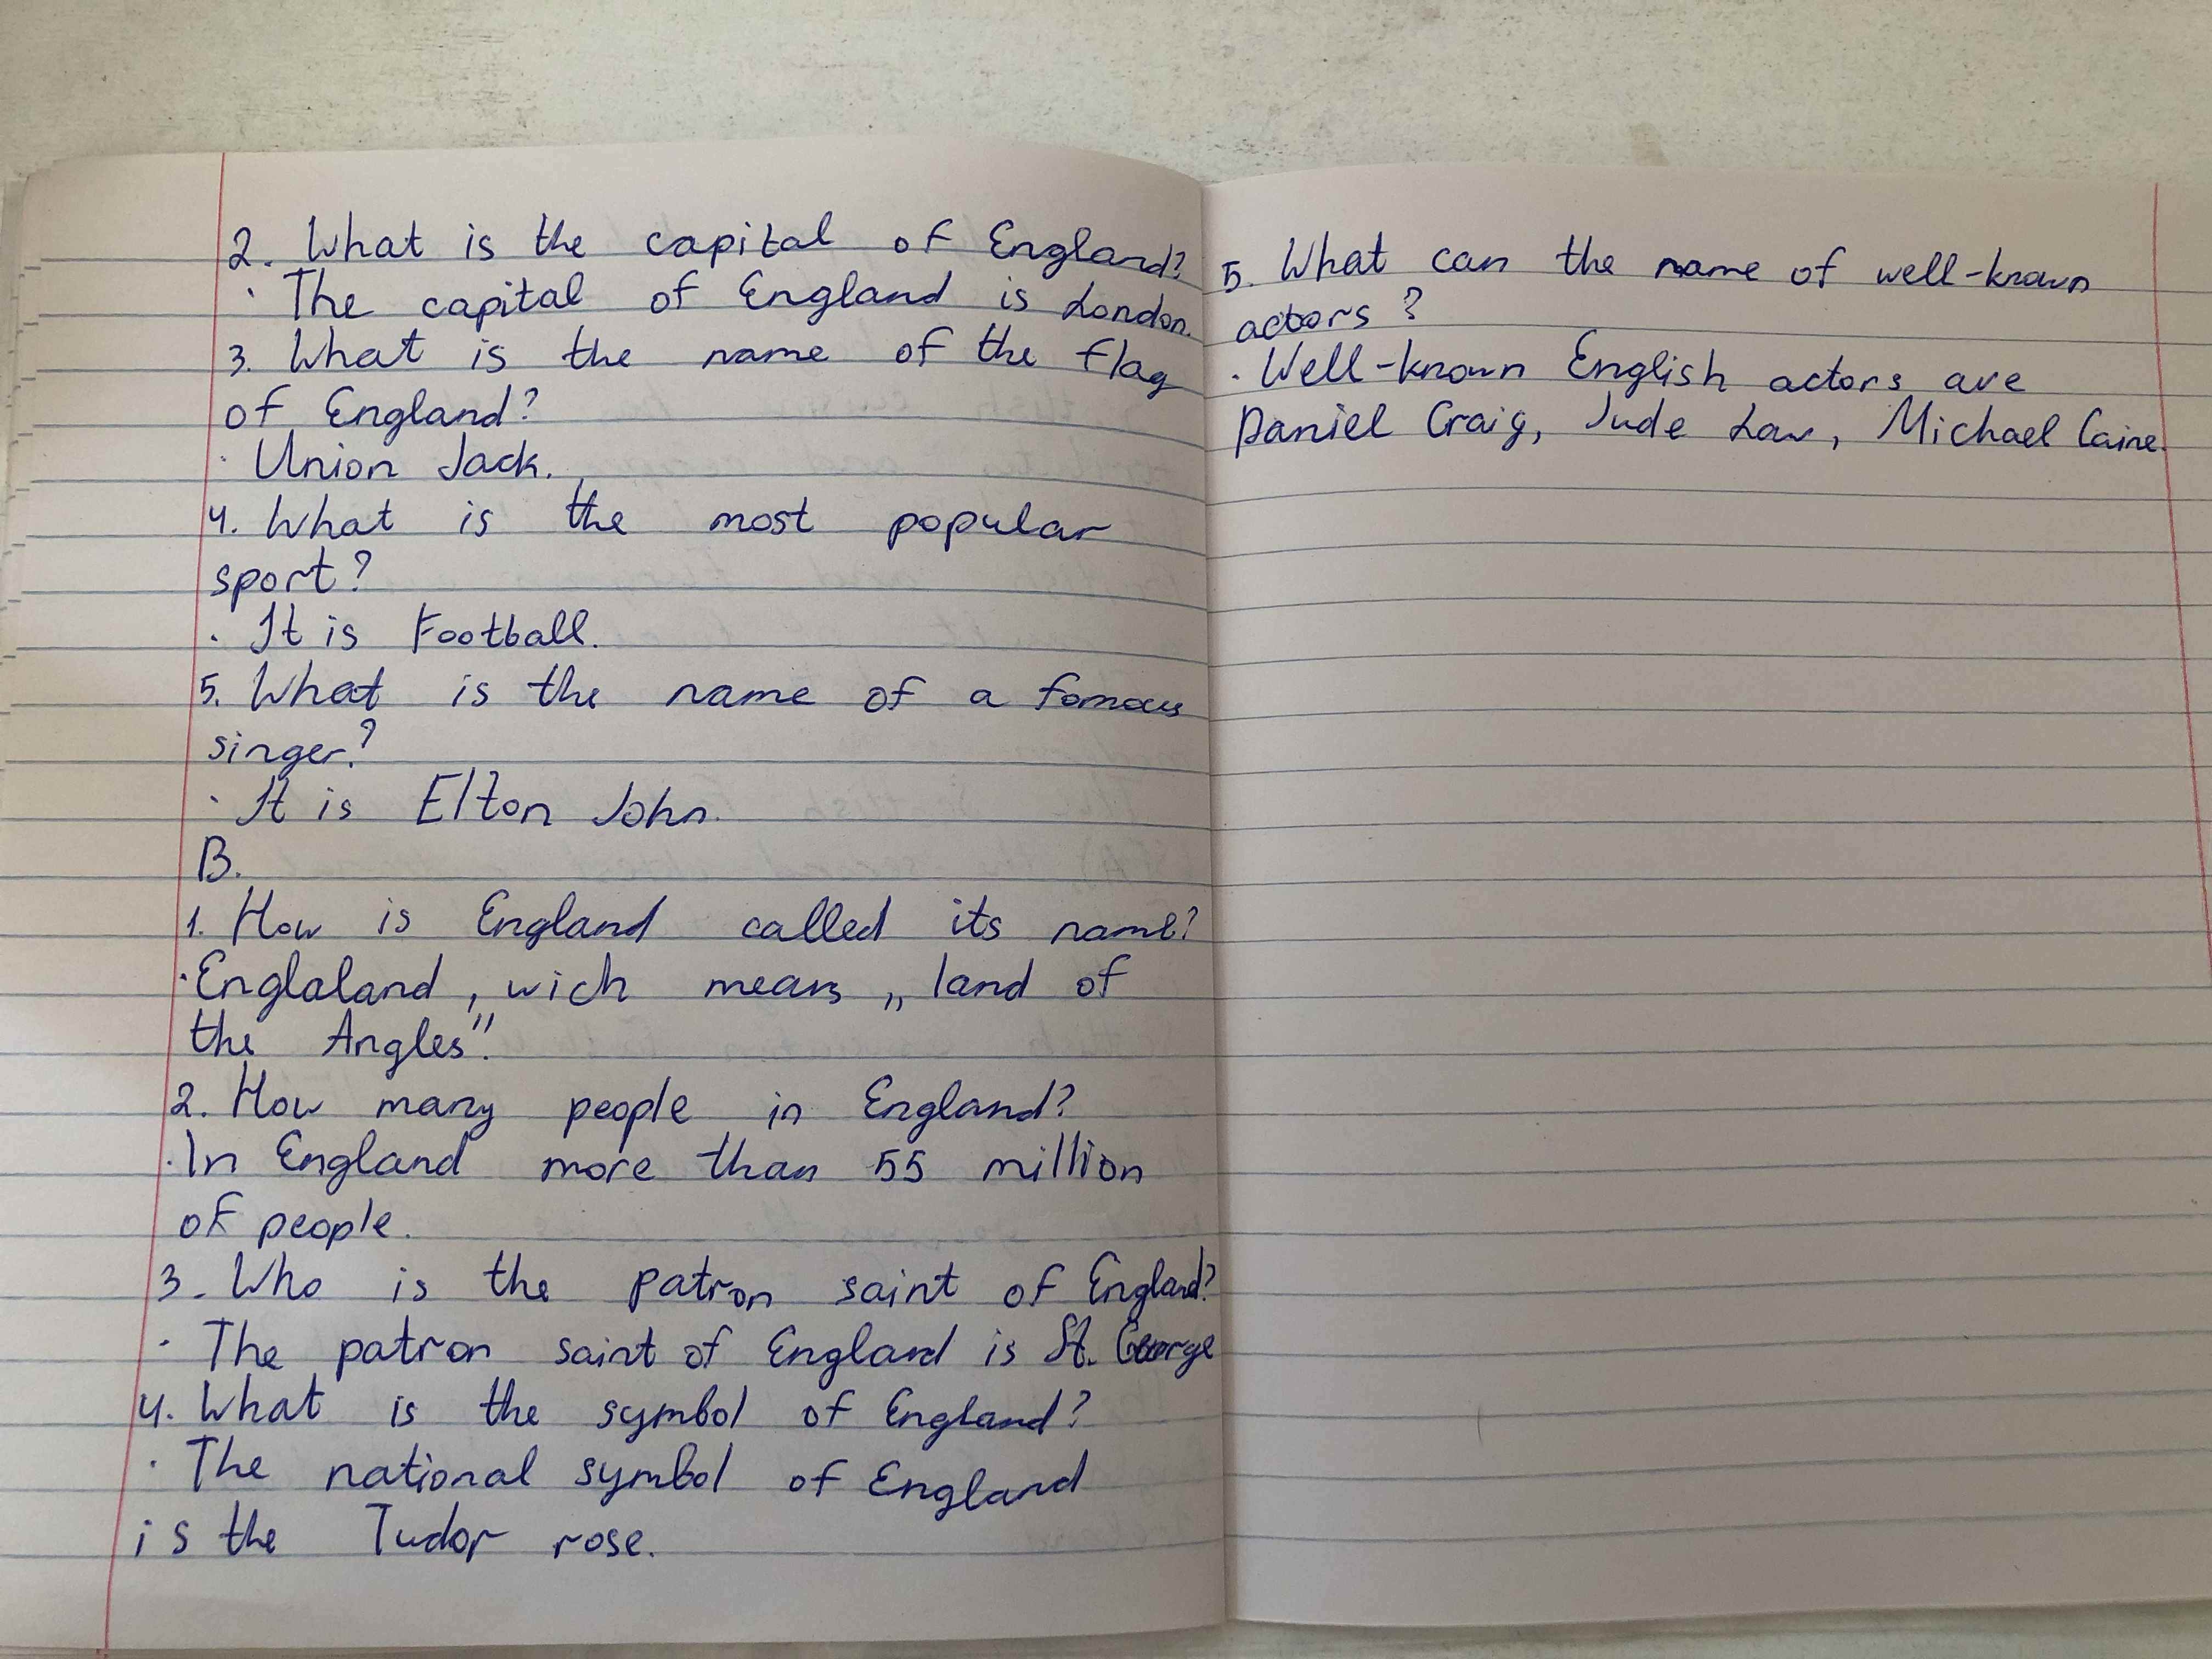 2. What is the capital of England?
· The capital of England is London.
3. What is the name of the flag
of England?
· Union Jack.
4. What is the most popular
sport?
· It is Football.
5. What is the name of a famous
singer?
· It is Elton John.
B.
1. How is England called its name?
· Englaland, wich means „land of
the Angles".
2. How many people in England?
· In England more than 55 million
of people.
3. Who is the patron saint of England?
· The patron saint of England is St. George
4. What is the symbol of England?
· The national symbol of England
is the Tudor rose.
5. What can the name of well-known
actors?
· Well-known English actors are
Daniel Craig, Jude Law, Michael Caine.